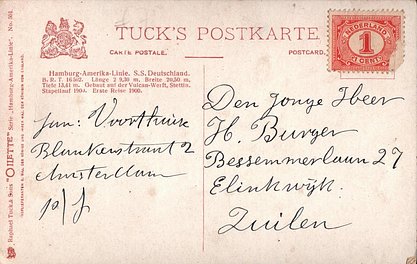 TUCK'S POSTKARTE
CARTE POSTALE.
POSTCARD.
NEDERLAND
1
CENT
Hamburg-Amerika-Linie. S.S. Deutschland.
B. R. T. 16502. Länge 2 9,30 m. Breite 20,50 m.
Tiefe 13,41 m. Gebaut auf der Vulcan-Werft, Stettin.
Stapellauf 1900. Erste Reise 1900.
Fam: Voorthuize
Blankenstraat 2
Amsterdam
p/f
Den Jonge Heer
H. Burger
Bessemmerlaan 27
Elinkwijk.
Zuilen
Raphael Tuck & Sons "OILETTE" Serie „Hamburg-Amerika-Linie" No. 501